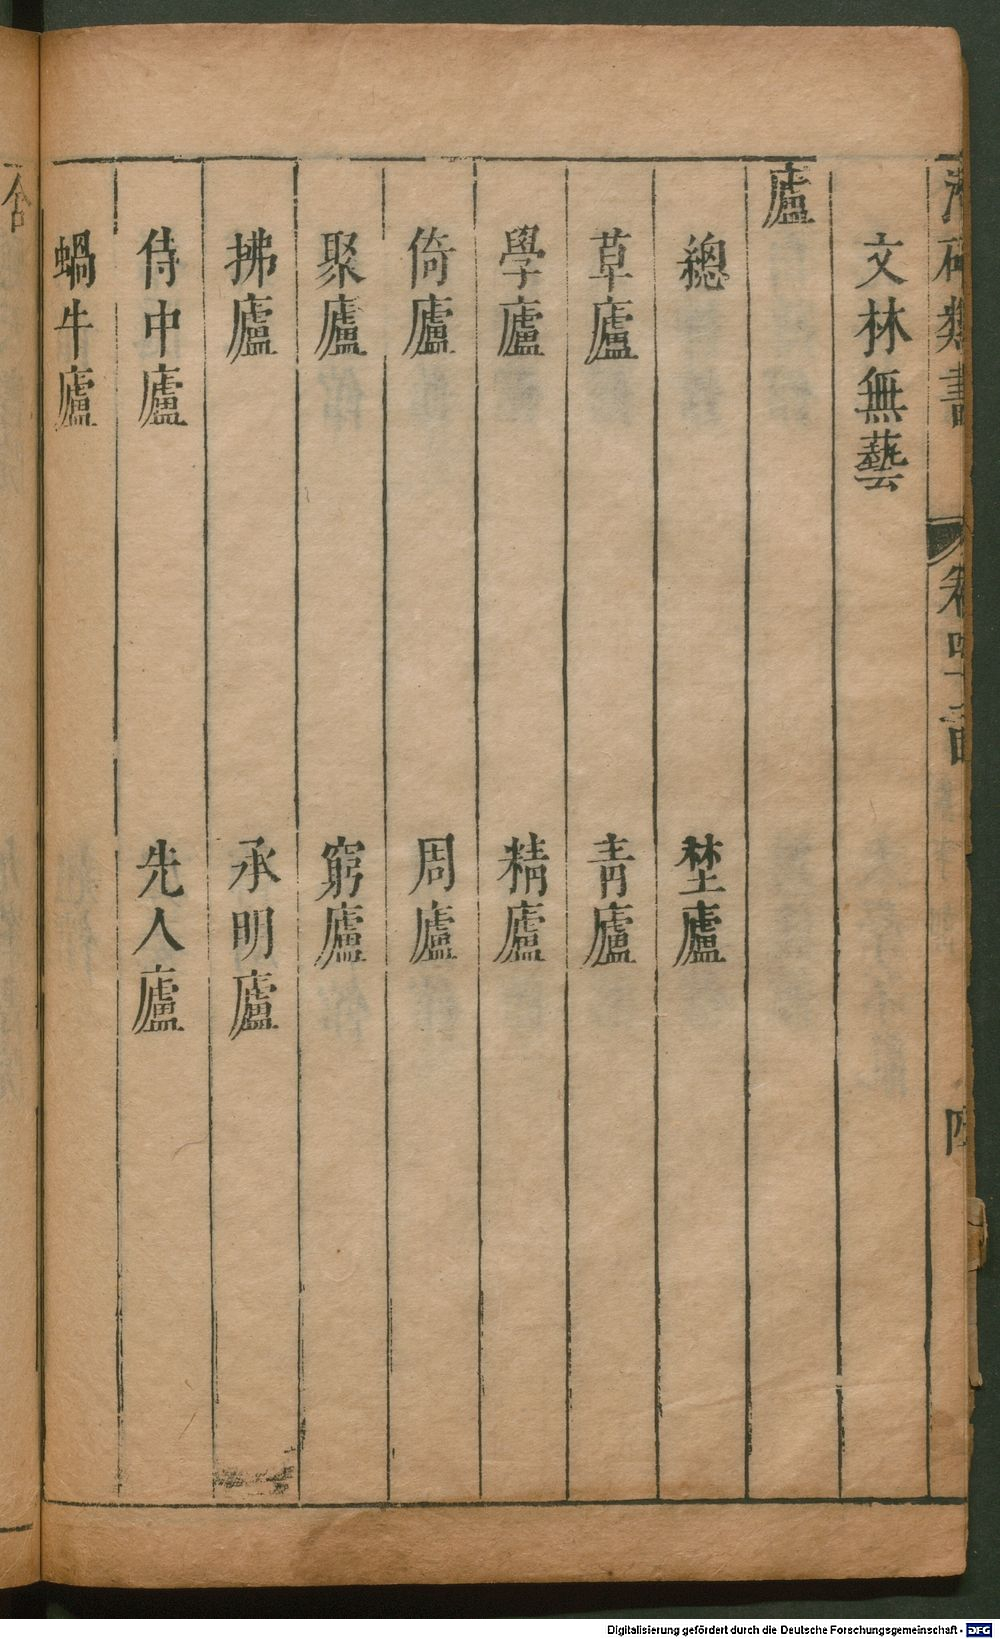 潛確類書 卷四十二
文林無藝
廬
總 埜廬
草廬 青廬
學廬 精廬
倚廬 周廬
聚廬 窮廬
拂廬 承明廬
侍中廬 先人廬
蝸牛廬
舍
Digitalisierung gefördert durch die Deutsche Forschungsgemeinschaft - DFG